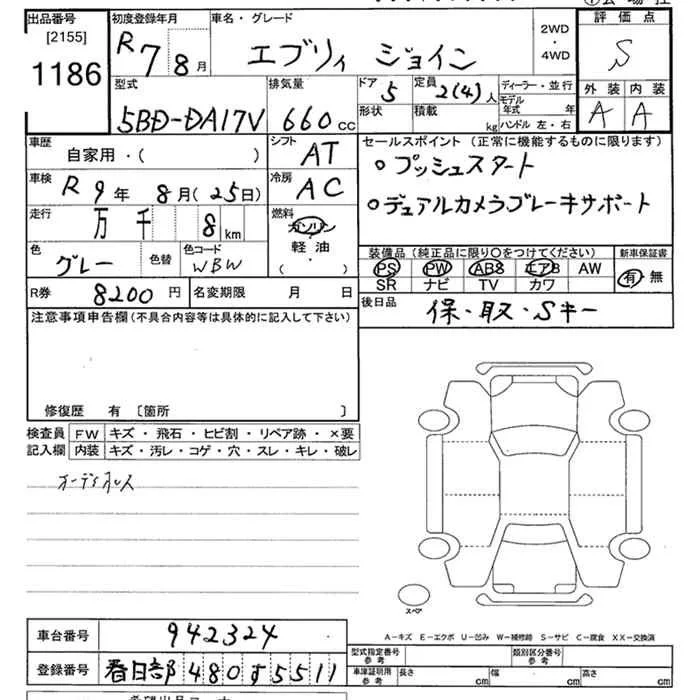 出品番号 初度登録年月 車名・グレード 2WD・4WD 評価点
[2155]
1186 R7 8月 エブリィ ジョイン S
型式 排気量 ドア 定員 ディーラー・並行 外装 内装
5BD-DA17V 660cc 5 2(4)人 モデル年式 年 A A
形状 積載 kg ハンドル 左・右
車歴 シフト セールスポイント(正常に機能するものに限ります)
自家用・( ) AT ○プッシュスタート
車検 R9年 8月(25日) 冷房 AC
走行 万 千 8km 燃料 ガソリン ○デュアルカメラブレーキサポート
軽油
( )
色 グレー 色替 色コード WBW
装備品(純正品に限り○をつけてください) 新車保証書
PS PW ABS エアB AW 有・無
SR ナビ TV カワ
R券 8200円 名変期限 月 日
後日品 保・取・Sキー
注意事項申告欄(不具合内容等は具体的に記入して下さい)
修復歴 有 〔箇所 〕
検査員 FW キズ・飛石・ヒビ割・リペア跡・×要
記入欄 内装 キズ・汚レ・コゲ・穴・スレ・キレ・破レ
オーディオレス
スペア
A-キズ E-エクボ U-凹み W-補修跡 S-サビ C-腐食 XX-交換済
車台番号 942324
型式指定番号 参考 類別区分番号 参考
登録番号 春日部 480す5511
車庫証明用 参考 長さ cm 幅 cm 高さ cm